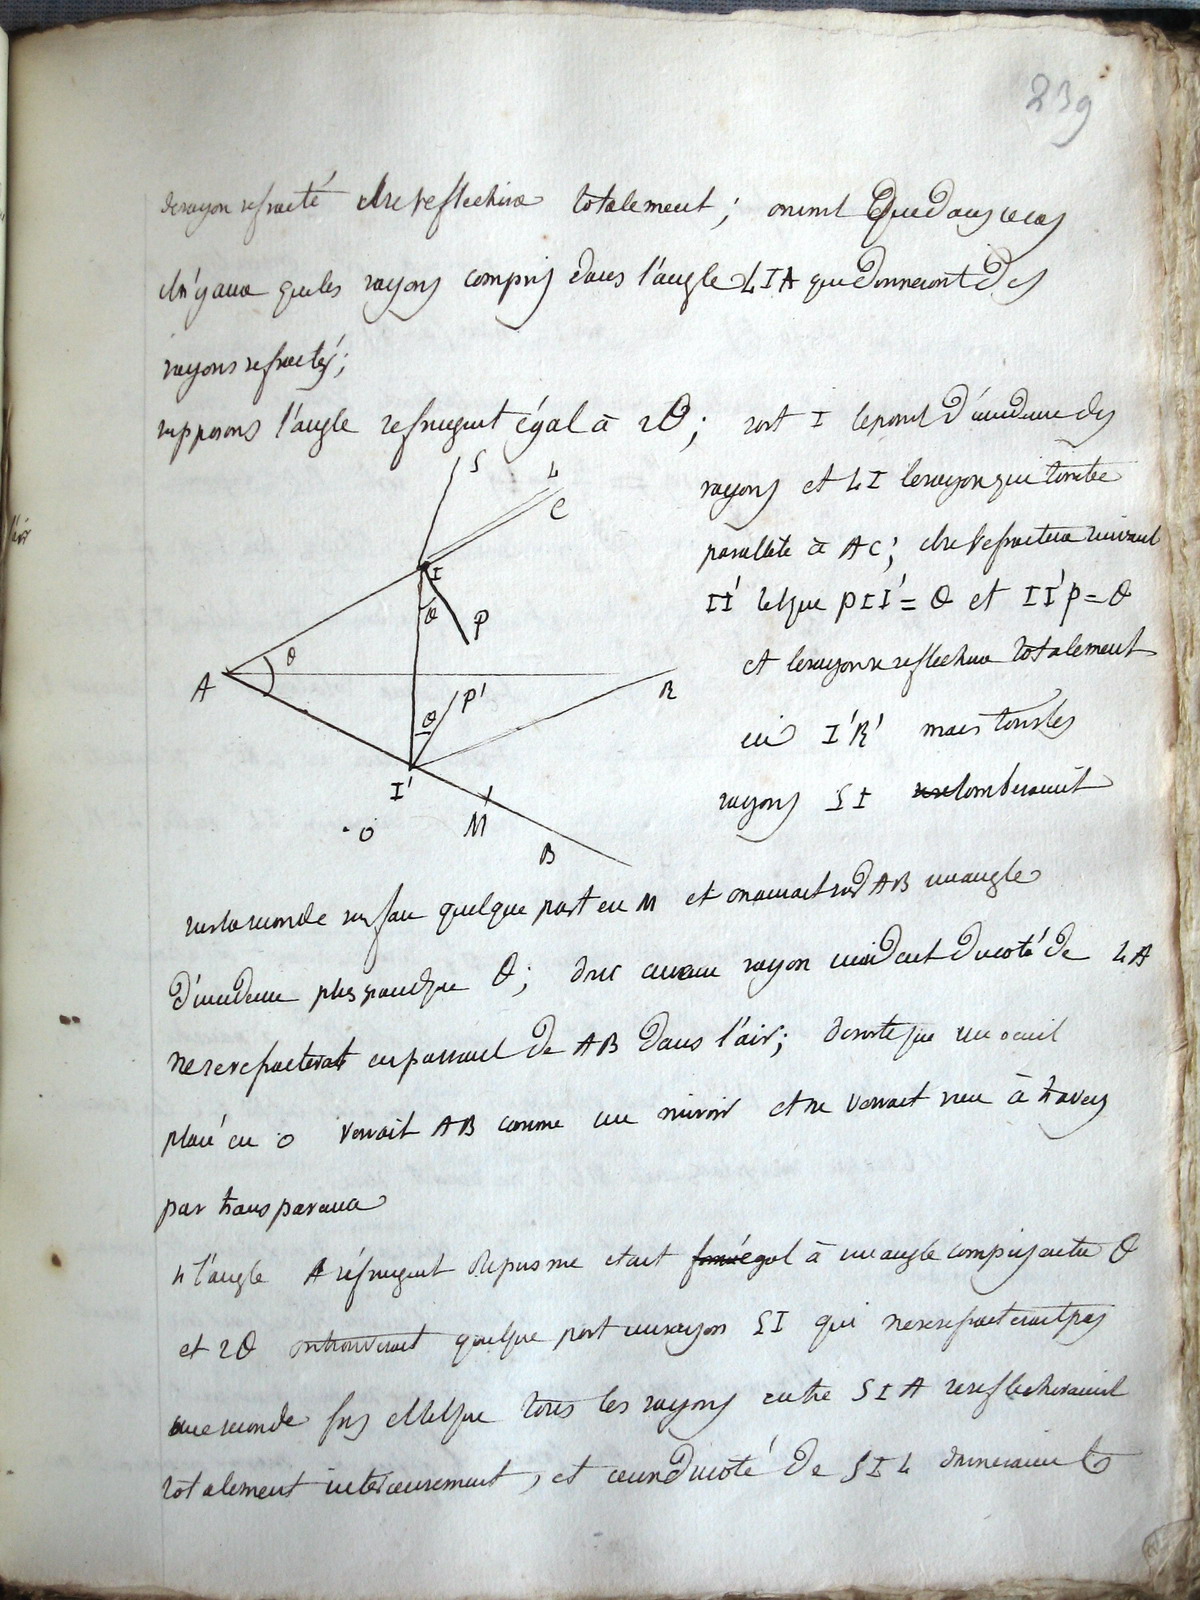 239
de rayon refracté et se reflechira totalement; on voit que dans ce cas
il n'y aura que les rayons compris dans l'angle LIA qui donneront des
rayons refractés;
supposons l'angle refringent égal à 2θ; soit I le point d'incidence des
rayons et LI le rayon qui tombe
parallele à AC; il se refractera suivant
II' tel que PII' = θ et II'P = θ
et le rayon se reflechira totalement
en I'R' mais tous les
rayons SI tomberaient
sur la seconde surface quelque part en M et on aurait sur AB un angle
d'incidence plus grand que θ; donc aucun rayon incident du coté de LA
ne se refracterat en passant de AB dans l'air; de sorte que un oeuil
placé en O verrait AB comme un miroir et ne verrait rien à travers
par transparence
si l'angle A réfringent du prisme etait égal à un angle compris entre θ
et 2θ on trouverait quelque part un rayon SI qui ne se refracterait pas
une seconde fois et tel que tous les rayons entre SIA se reflechiraient
totalement interieurement, et ceux du coté de SIL donneraient
S
L
C
I
θ
P
A
θ
P'
R
θ
I'
O
M
B